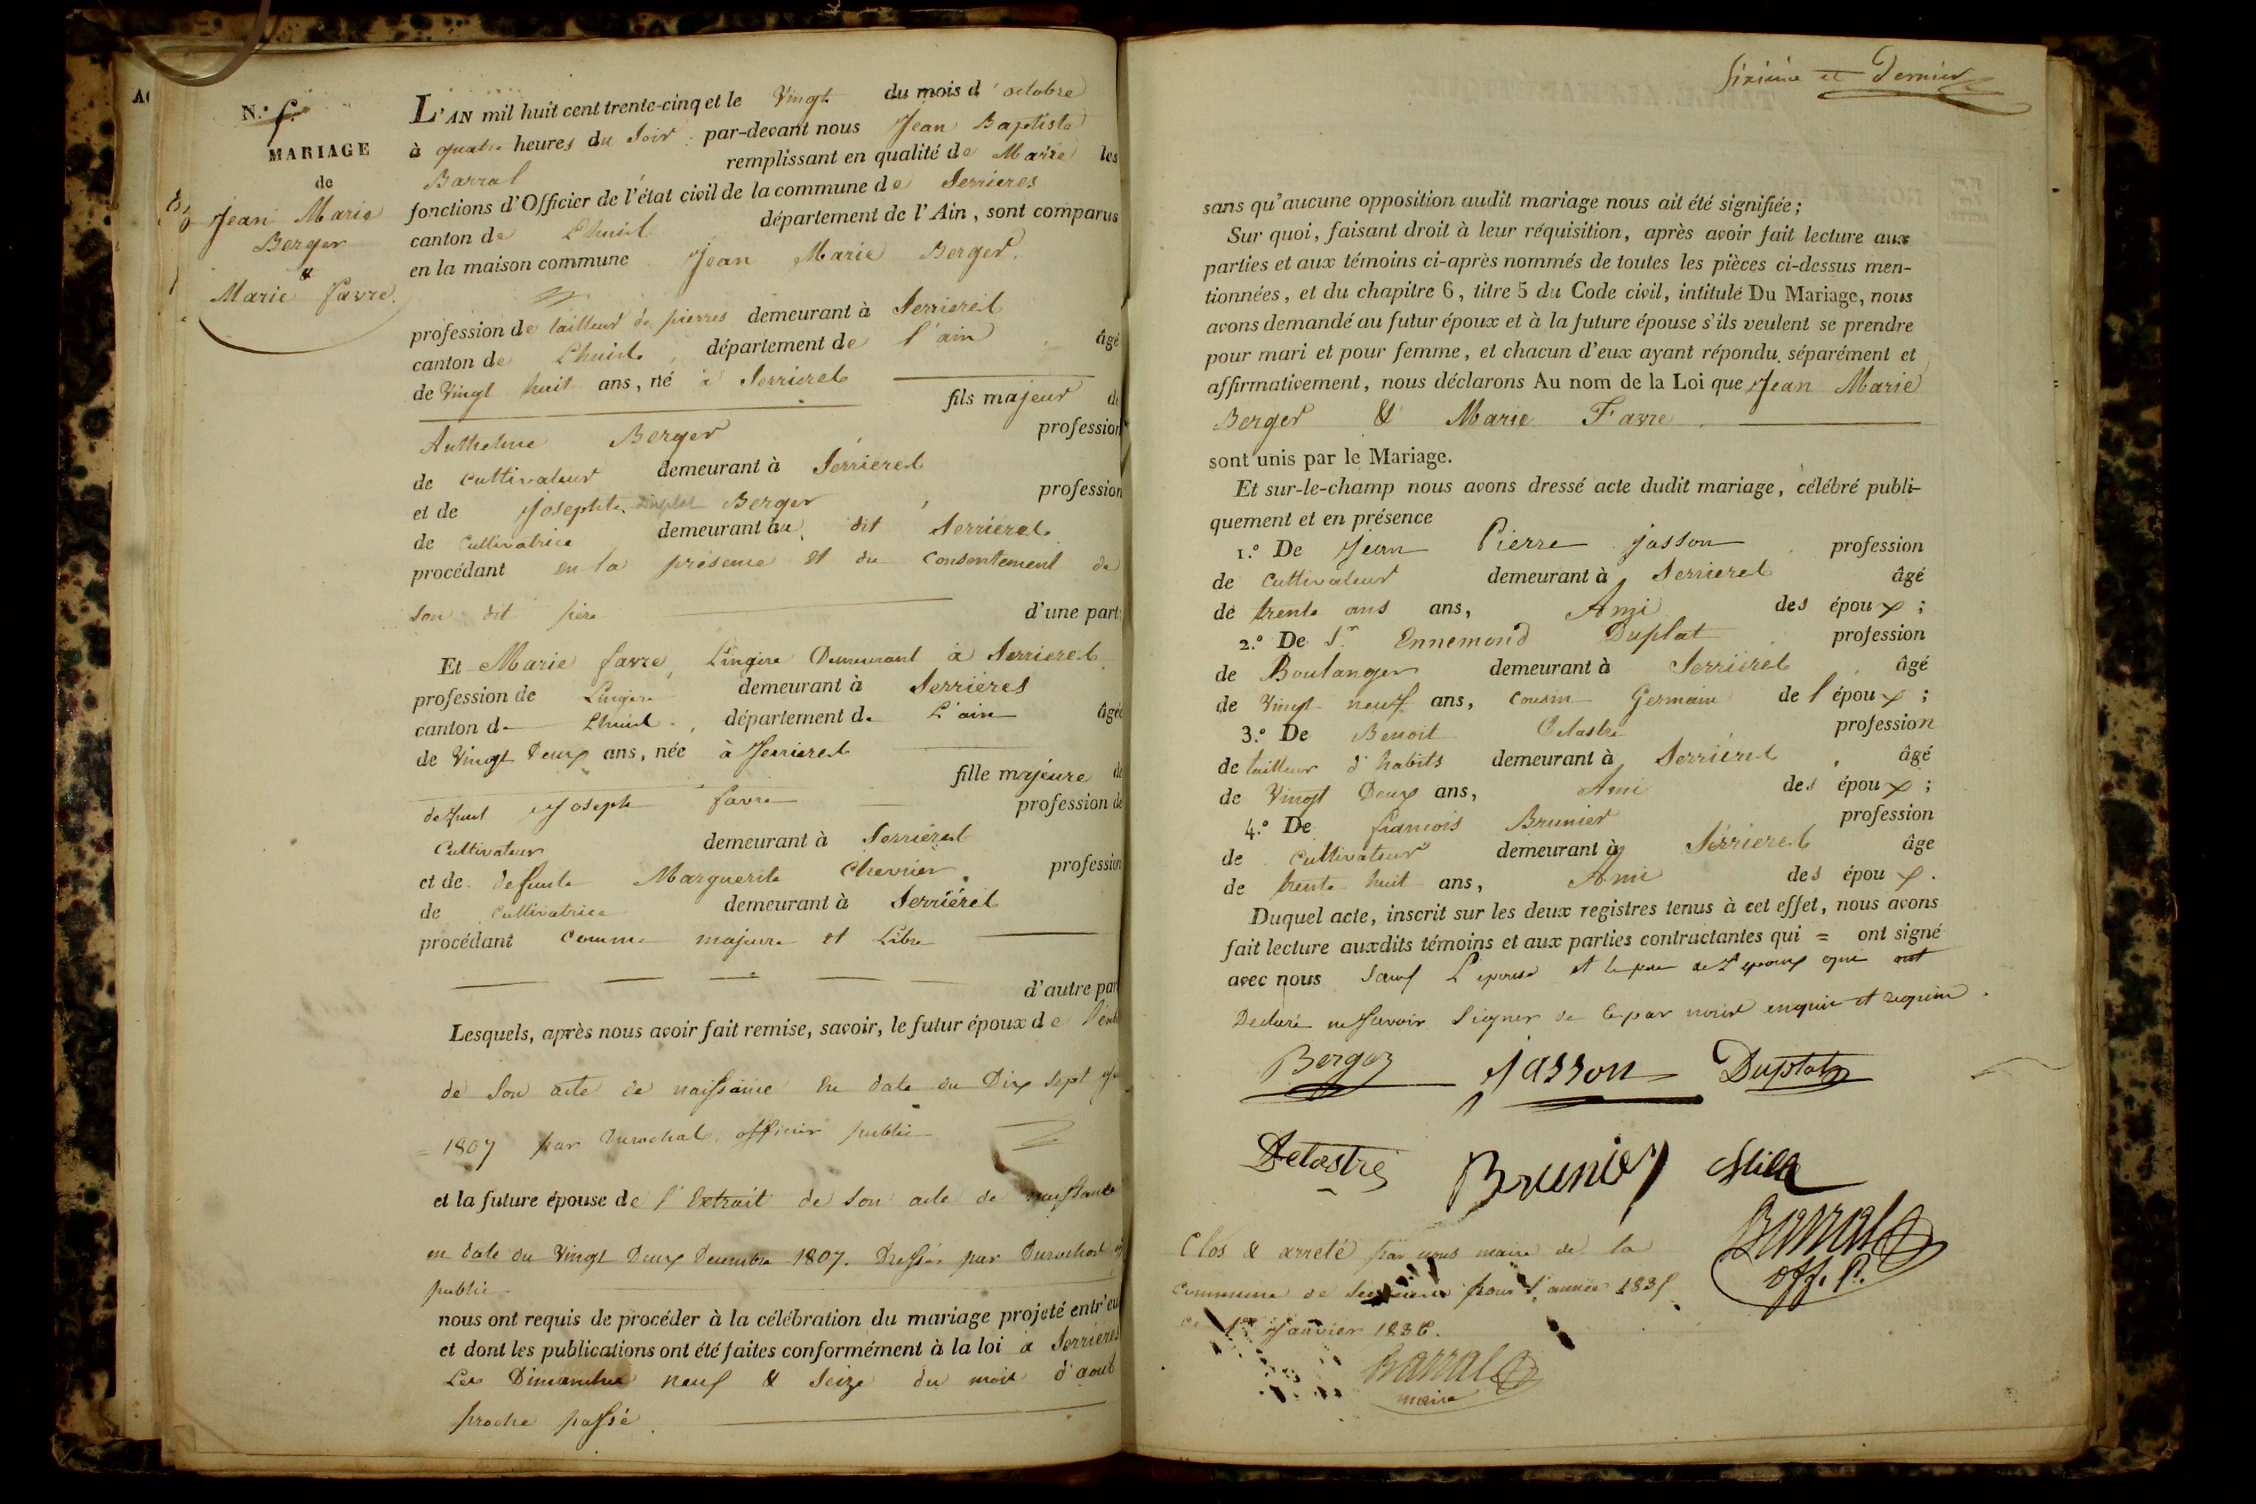 N.º
MARIAGE
de
Jean Marie
Berger
&
Marie favre.
L'AN mil huit cent trente-cinq et le Vingt du mois d'octobre
à quatre heures du Soir par-devant nous Jean Baptiste
Barral remplissant en qualité de Maire les
fonctions d'Officier de l'état civil de la commune de Serrieres
canton de Lhuis département de l'Ain, sont comparus
en la maison commune Jean Marie Berger.
profession de tailleur de pierres demeurant à Serrieres
canton de Lhuis, département de l'ain âgé
de Vingt huit ans, né à Serrieres
fils majeur de
Anthelme Berger profession
de cultivateur demeurant à Serrieres
et de Josephte Duplat Berger, profession
de Cultivatrice demeurant au dit Serrieres
procédant en la présence et du consentement de
son dit père d'une part;
Et Marie favre, Lingère Demeurant à Serrieres
profession de Lingere demeurant à Serrières
canton de Lhuis, département de L'ain âgée
de Vingt Deux ans, née à Serrieres
fille majeure de
defunt Joseph favre profession de
Cultivateur demeurant à Serriéres
et de defunte Marguerite Chevrier profession
de cultivatrice demeurant à Serriéres
procédant comme majeure et Libre
d'autre part
Lesquels, après nous avoir fait remise, savoir, le futur époux de
de Son acte de naissance en date du Dix sept
1807 par Durochat officier public
et la future épouse de l'Extrait de son acte de naissance
en date du Vingt Deux Decembre 1807. Dressée par Durochat
public
nous ont requis de procéder à la célébration du mariage projeté entr'eux
et dont les publications ont été faites conformément à la loi à Serrieres
Les Dimanches neuf & Seize du mois d'aout
proche passé.
sixième et Dernier
sans qu'aucune opposition audit mariage nous ait été signifiée;
Sur quoi, faisant droit à leur réquisition, après avoir fait lecture aux
parties et aux témoins ci-après nommés de toutes les pièces ci-dessus men-
tionnées, et du chapitre 6, titre 5 du Code civil, intitulé Du Mariage, nous
avons demandé au futur époux et à la future épouse s'ils veulent se prendre
pour mari et pour femme, et chacun d'eux ayant répondu séparément et
affirmativement, nous déclarons Au nom de la Loi que Jean Marie
Berger & Marie Favre.
sont unis par le Mariage.
Et sur-le-champ nous avons dressé acte dudit mariage, célébré publi-
quement et en présence
1.º De Jean Pierre Jasson profession
de cultivateur demeurant à Serrieres âgé
de trente ans ans, Ami des époux;
2.º De Sr Ennemond Duplat profession
de Boulanger demeurant à Serriéres âgé
de Vingt neuf ans, cousin Germain de l'époux;
3.º De Benoit Delastre profession
de tailleur d'habits demeurant à Serriéres, âgé
de Vingt Deux ans, Ami des époux;
4.º De francois Brunier profession
de cultivateur demeurant à Sérrieres âge
de trente huit ans, Ami des époux.
Duquel acte, inscrit sur les deux registres tenus à cet effet, nous avons
fait lecture auxdits témoins et aux parties contractantes qui = ont signé
avec nous Sauf L'epouse et le pere de L'epoux qui ont
Declaré ne Savoir Signer de ce par nous enquis et requis.
Berger Jasson Duplat
Delastre Brunier
Barral
off. P.
Clos & arreté par nous maire de la
commune de Serrieres pour l'année 1835
ce 1er Janvier 1836.
Barral
maire